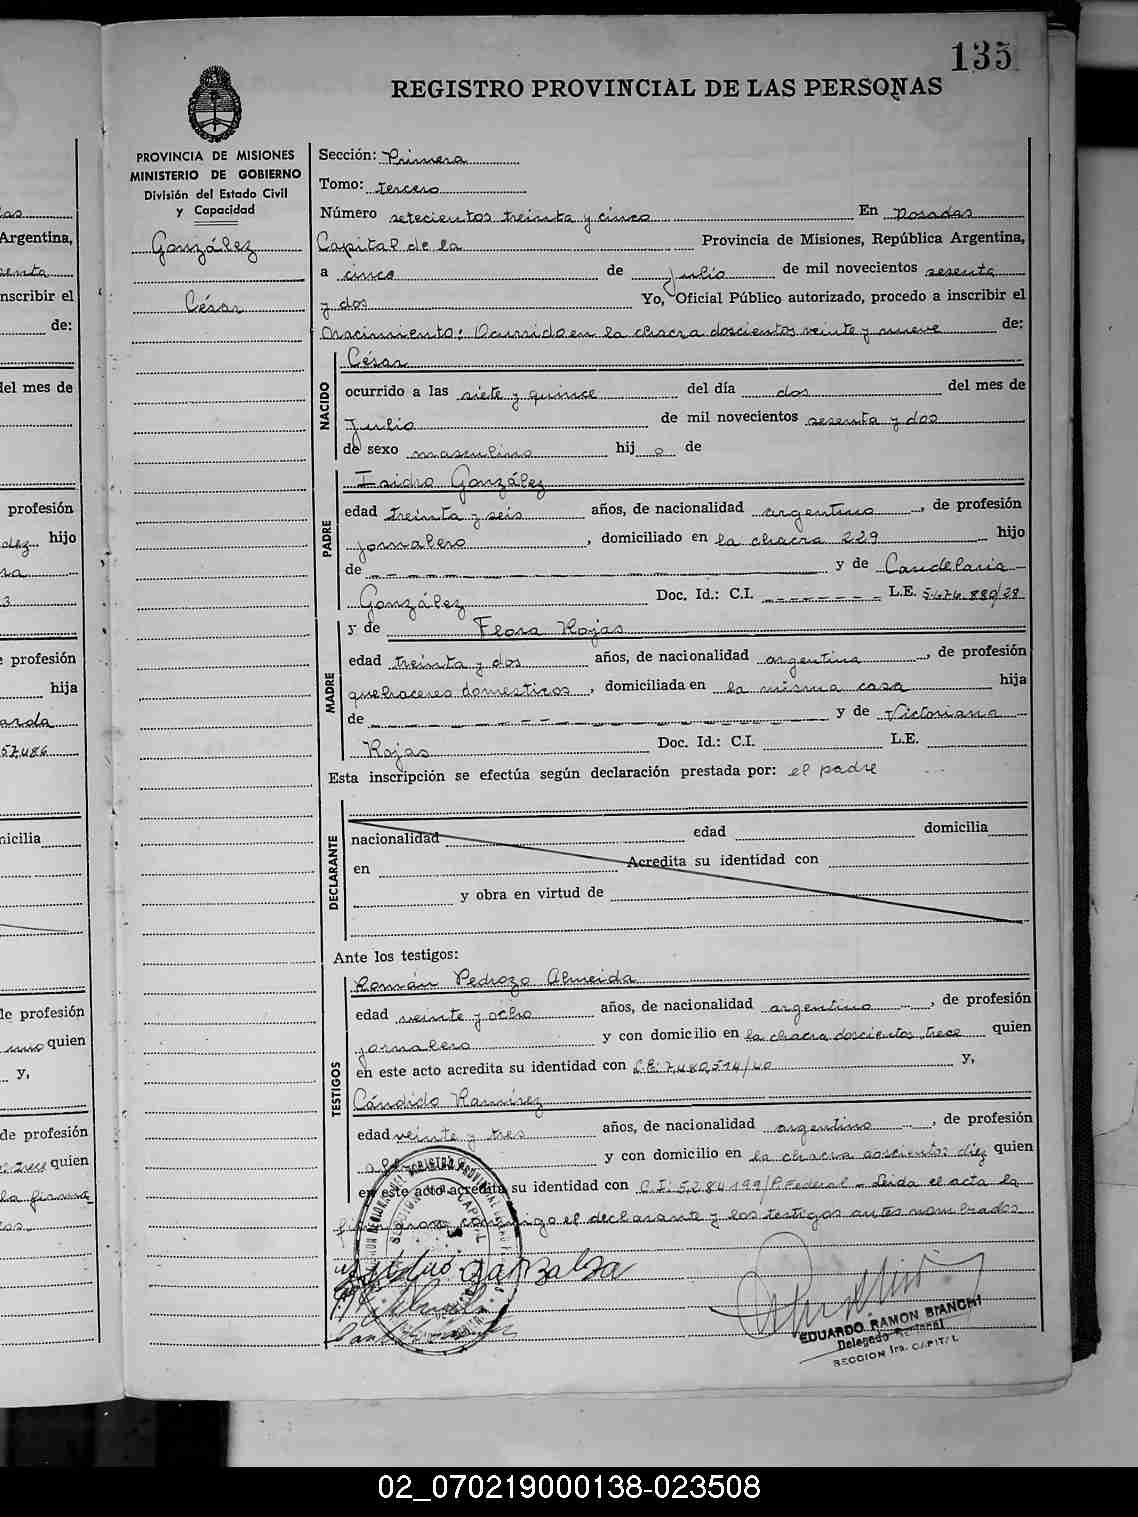 135
REGISTRO PROVINCIAL DE LAS PERSONAS
PROVINCIA DE MISIONES
MINISTERIO DE GOBIERNO
División del Estado Civil
y Capacidad
González
César
Sección: Primera
Tomo: Tercero
Número setecientos treinta y cinco En Posadas
Capital de la Provincia de Misiones, República Argentina,
a cinco de Julio de mil novecientos sesenta
y dos Yo, Oficial Público autorizado, procedo a inscribir el
nacimiento: Ocurrido en la chacra doscientos veinte y nueve de:
NACIDO
César
ocurrido a las siete y quince del día dos del mes de
Julio de mil novecientos sesenta y dos
de sexo masculino hij o de
PADRE
Isidro González
edad treinta y seis años, de nacionalidad argentino, de profesión
jornalero, domiciliado en la chacra 229 hijo
de y de Candelaria
González Doc. Id.: C.I. L.E. 5.474.880/28
MADRE
y de Flora Rojas
edad treinta y dos años, de nacionalidad argentina, de profesión
quehaceres domesticos, domiciliada en la misma casa hija
de y de Victoriana
Rojas Doc. Id.: C.I. L.E.
Esta inscripción se efectúa según declaración prestada por: el padre
DECLARANTE
nacionalidad edad domicilia
en Acredita su identidad con
y obra en virtud de
Ante los testigos:
TESTIGOS
Román Pedrozo Almeida
edad veinte y ocho años, de nacionalidad argentino, de profesión
jornalero y con domicilio en la chacra doscientos trece quien
en este acto acredita su identidad con L.E. 7.480.514/40 y,
Cándido Ramírez
edad veinte y tres años, de nacionalidad argentino, de profesión
y con domicilio en la chacra doscientos diez quien
en este acto acredita su identidad con C.I. 5.284.199/P.Federal - Leida el acta la
conmigo el declarante y los testigos antes nombrados
EDUARDO RAMON BIANCHI
Delegado Seccional
SECCION 1ra. CAPITAL
Argentina,
inscribir el
de:
del mes de
profesión
hijo
profesión
hija
57.486
de profesión
quien
y,
de profesión
quien
la firma
02_070219000138-023508